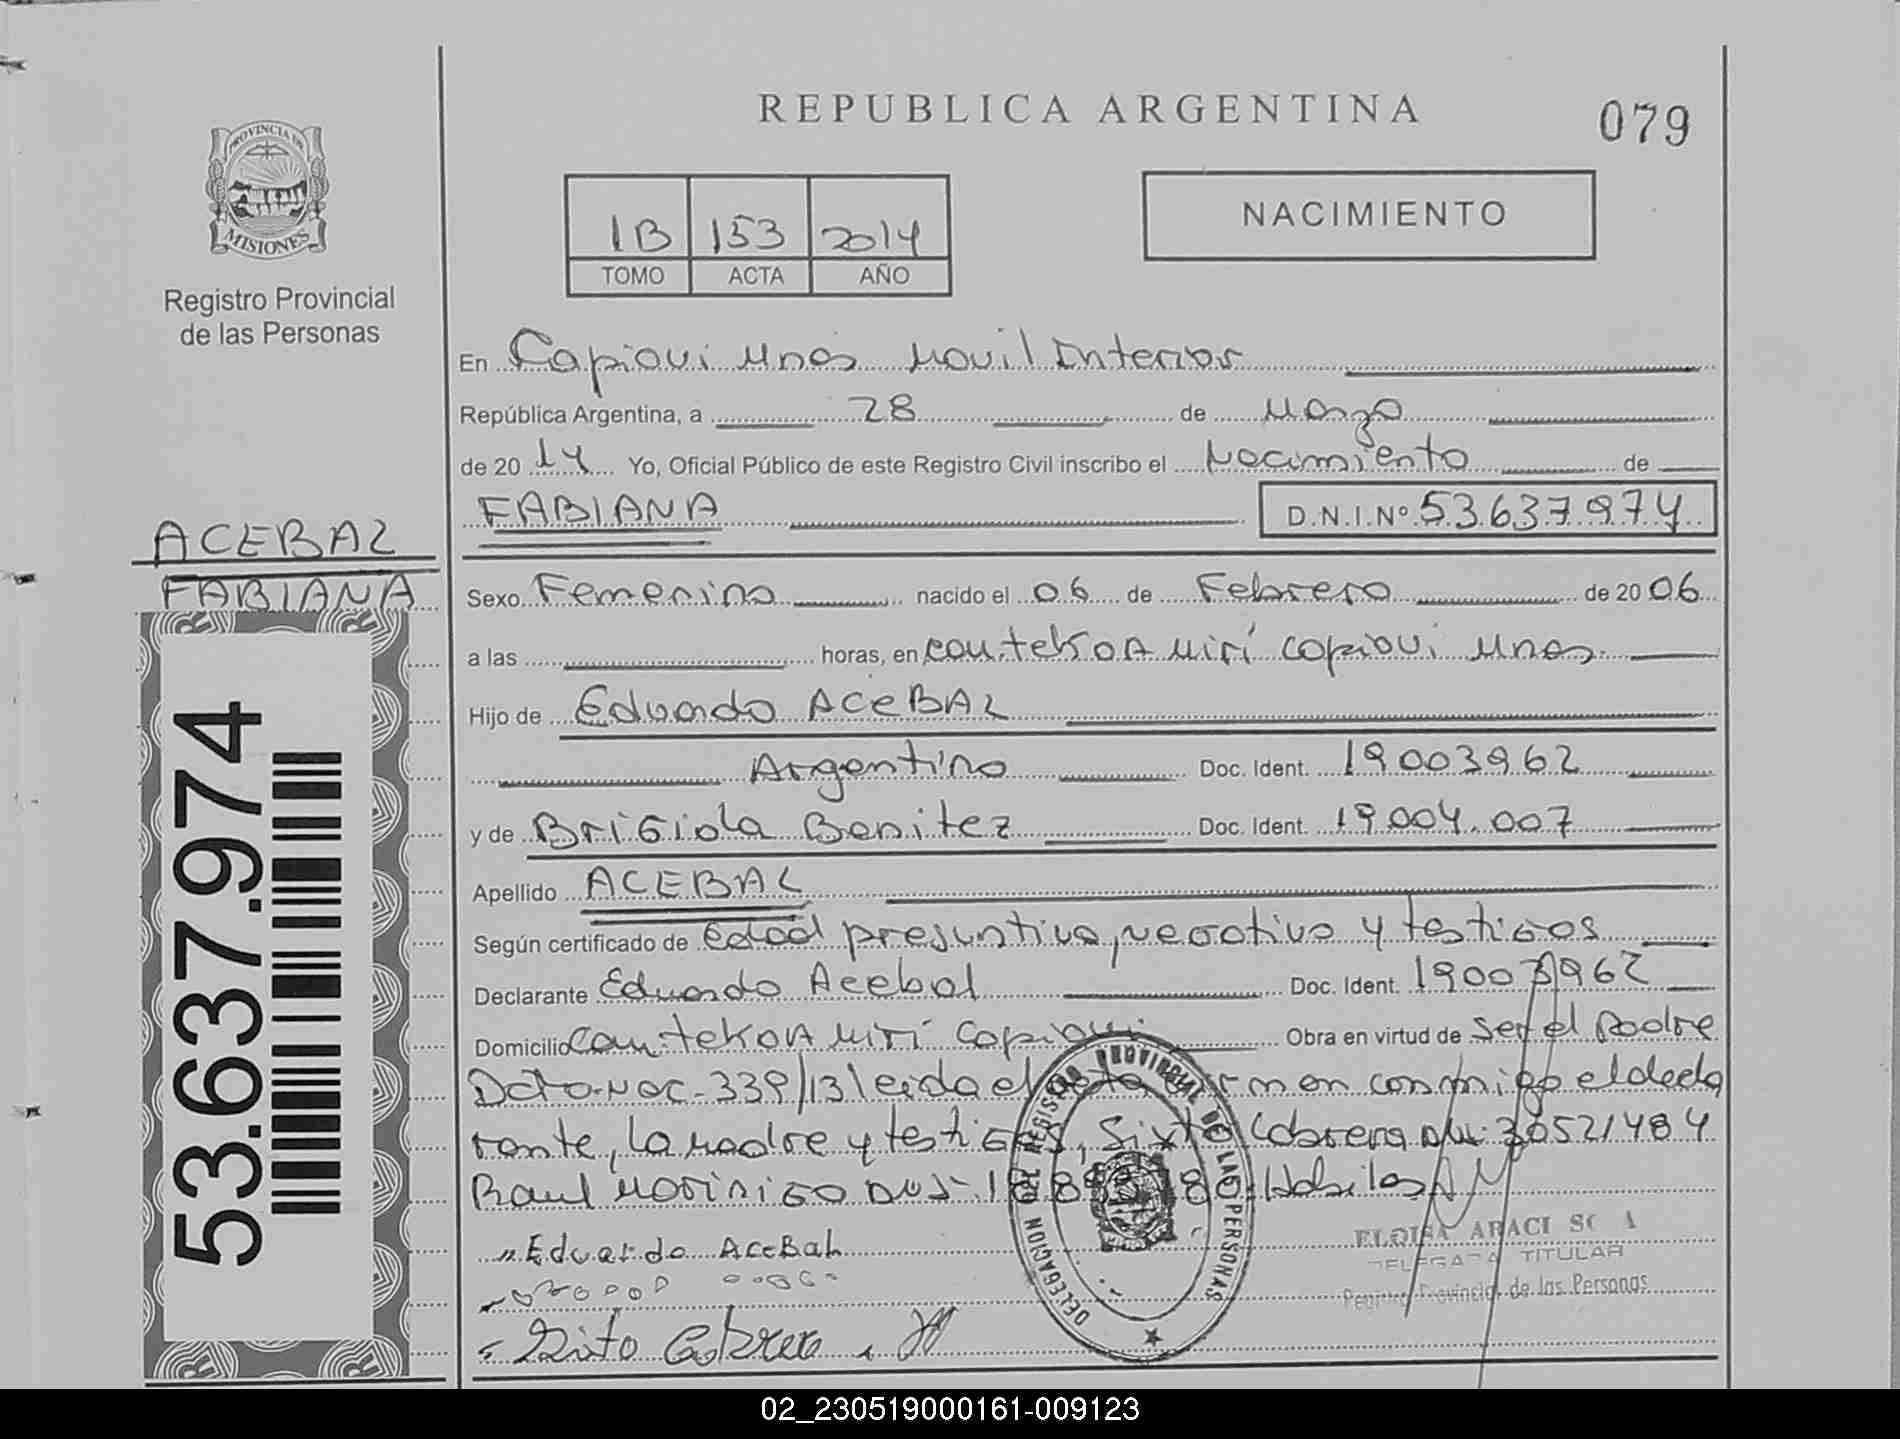 REPUBLICA ARGENTINA
079
PROVINCIA DE
MISIONES
Registro Provincial
de las Personas
1B 153 2014
TOMO ACTA AÑO
NACIMIENTO
En Capiovi Mnes Movil Interior
República Argentina, a 28 de Marzo
de 2014 Yo, Oficial Público de este Registro Civil inscribo el Nacimiento de
FABIANA D.N.I.Nº 53.637.974
ACEBAL
FABIANA
Sexo Femenino nacido el 06 de Febrero de 2006
a las horas, en Cau.tekoA Mirí Capiovi Mnes.
Hijo de Eduardo ACeBAL
Argentino Doc. Ident. 19003962
y de BriGida Benitez Doc. Ident. 19.004.007
Apellido ACEBAL
Según certificado de Edad presuntiva, negativa y testigos
Declarante Eduardo Acebal Doc. Ident. 19003962
Domicilio Cau.tekoA Mirí Capiovi Obra en virtud de Ser el Padre
Dcto-Nac-339/13 leida el acta firman conmigo el decla
rante, la madre y testigos, Sixto Cabrera DNI: 30521484
Raul Morinigo DNI- Habiles
Eduardo AceBal
Sixto Cabrera
DELEGACION DEL REGISTRO PROVINCIAL DE LAS PERSONAS
ELOISA ARACI
DELEGADA TITULAR
Registro Provincial de las Personas
53.637.974
02_230519000161-009123